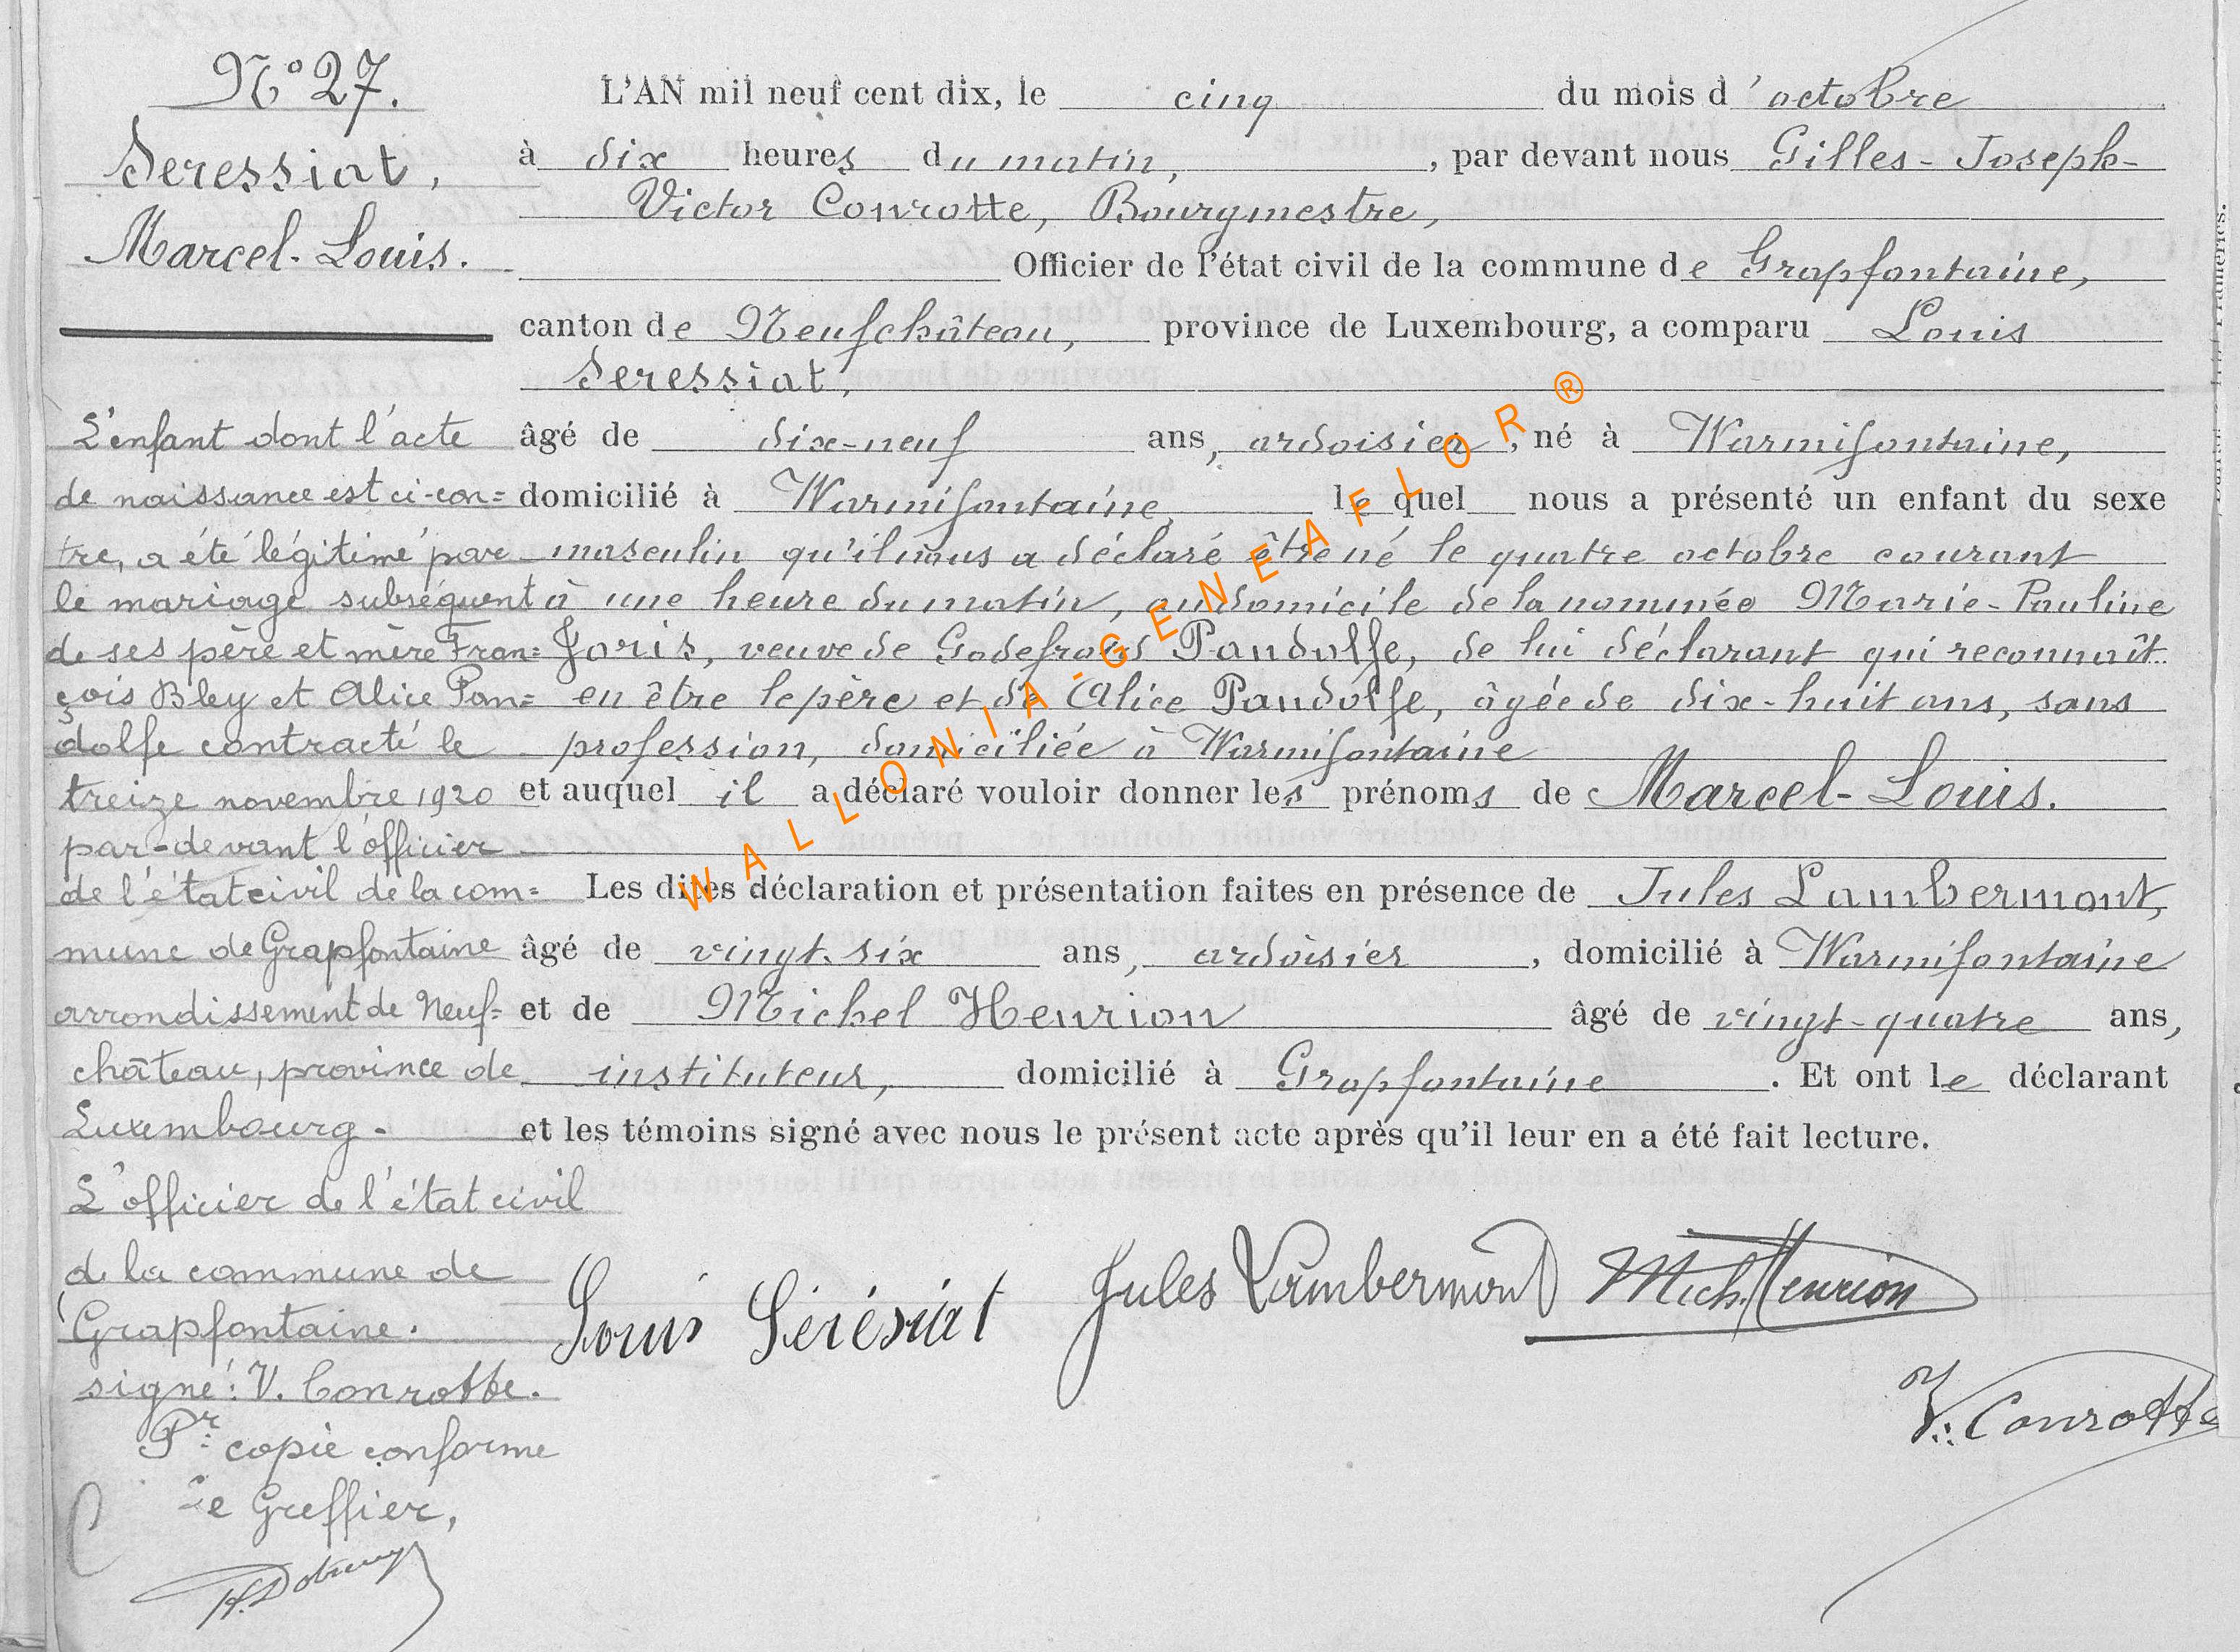 N° 27.
Seressiat,
Marcel-Louis.
L'AN mil neuf cent dix, le cinq du mois d'octobre
à dix heures du matin, , par devant nous Gilles-Joseph-
Victor Conrotte, Bourgmestre,
Officier de l'état civil de la commune de Grapfontaine,
canton de Neufchâteau, province de Luxembourg, a comparu Louis
Seressiat,
âgé de dix-neuf ans, ardoisier, né à Warmifontaine,
domicilié à Warmifontaine, lequel nous a présenté un enfant du sexe
masculin qu'il nous a déclaré être né le quatre octobre courant
à une heure du matin, au domicile de la nommée Marie-Pauline
Joris, veuve de Godefroid Pandolfe, de lui déclarant qui reconnaît
en être le père et de Alice Pandolfe, âgée de dix-huit ans, sans
profession, domiciliée à Warmifontaine
et auquel il a déclaré vouloir donner les prénoms de Marcel-Louis.
Les dites déclaration et présentation faites en présence de Jules Lambermont,
âgé de vingt-six ans, ardoisier, domicilié à Warmifontaine
et de Michel Henrion âgé de vingt-quatre ans,
instituteur, domicilié à Grapfontaine. Et ont le déclarant
et les témoins signé avec nous le présent acte après qu'il leur en a été fait lecture.
Louis Sérésiat Jules Lambermont Mich. Henrion
V. Conrotte
L'enfant dont l'acte
de naissance est ci-con=
tre, a été légitimé par
le mariage subséquent
de ses père et mère Fran=
çois Bley et Alice Pan=
dolfe contracté le
treize novembre 1920
par-devant l'officier
de l'état civil de la com=
mune de Grapfontaine
arrondissement de Neuf=
château, province de
Luxembourg.
L'officier de l'état civil
de la commune de
Grapfontaine.
signé: V. Conrotte.
Pr copie conforme
Le Greffier,
WALLONIA-GENEAFLOR®